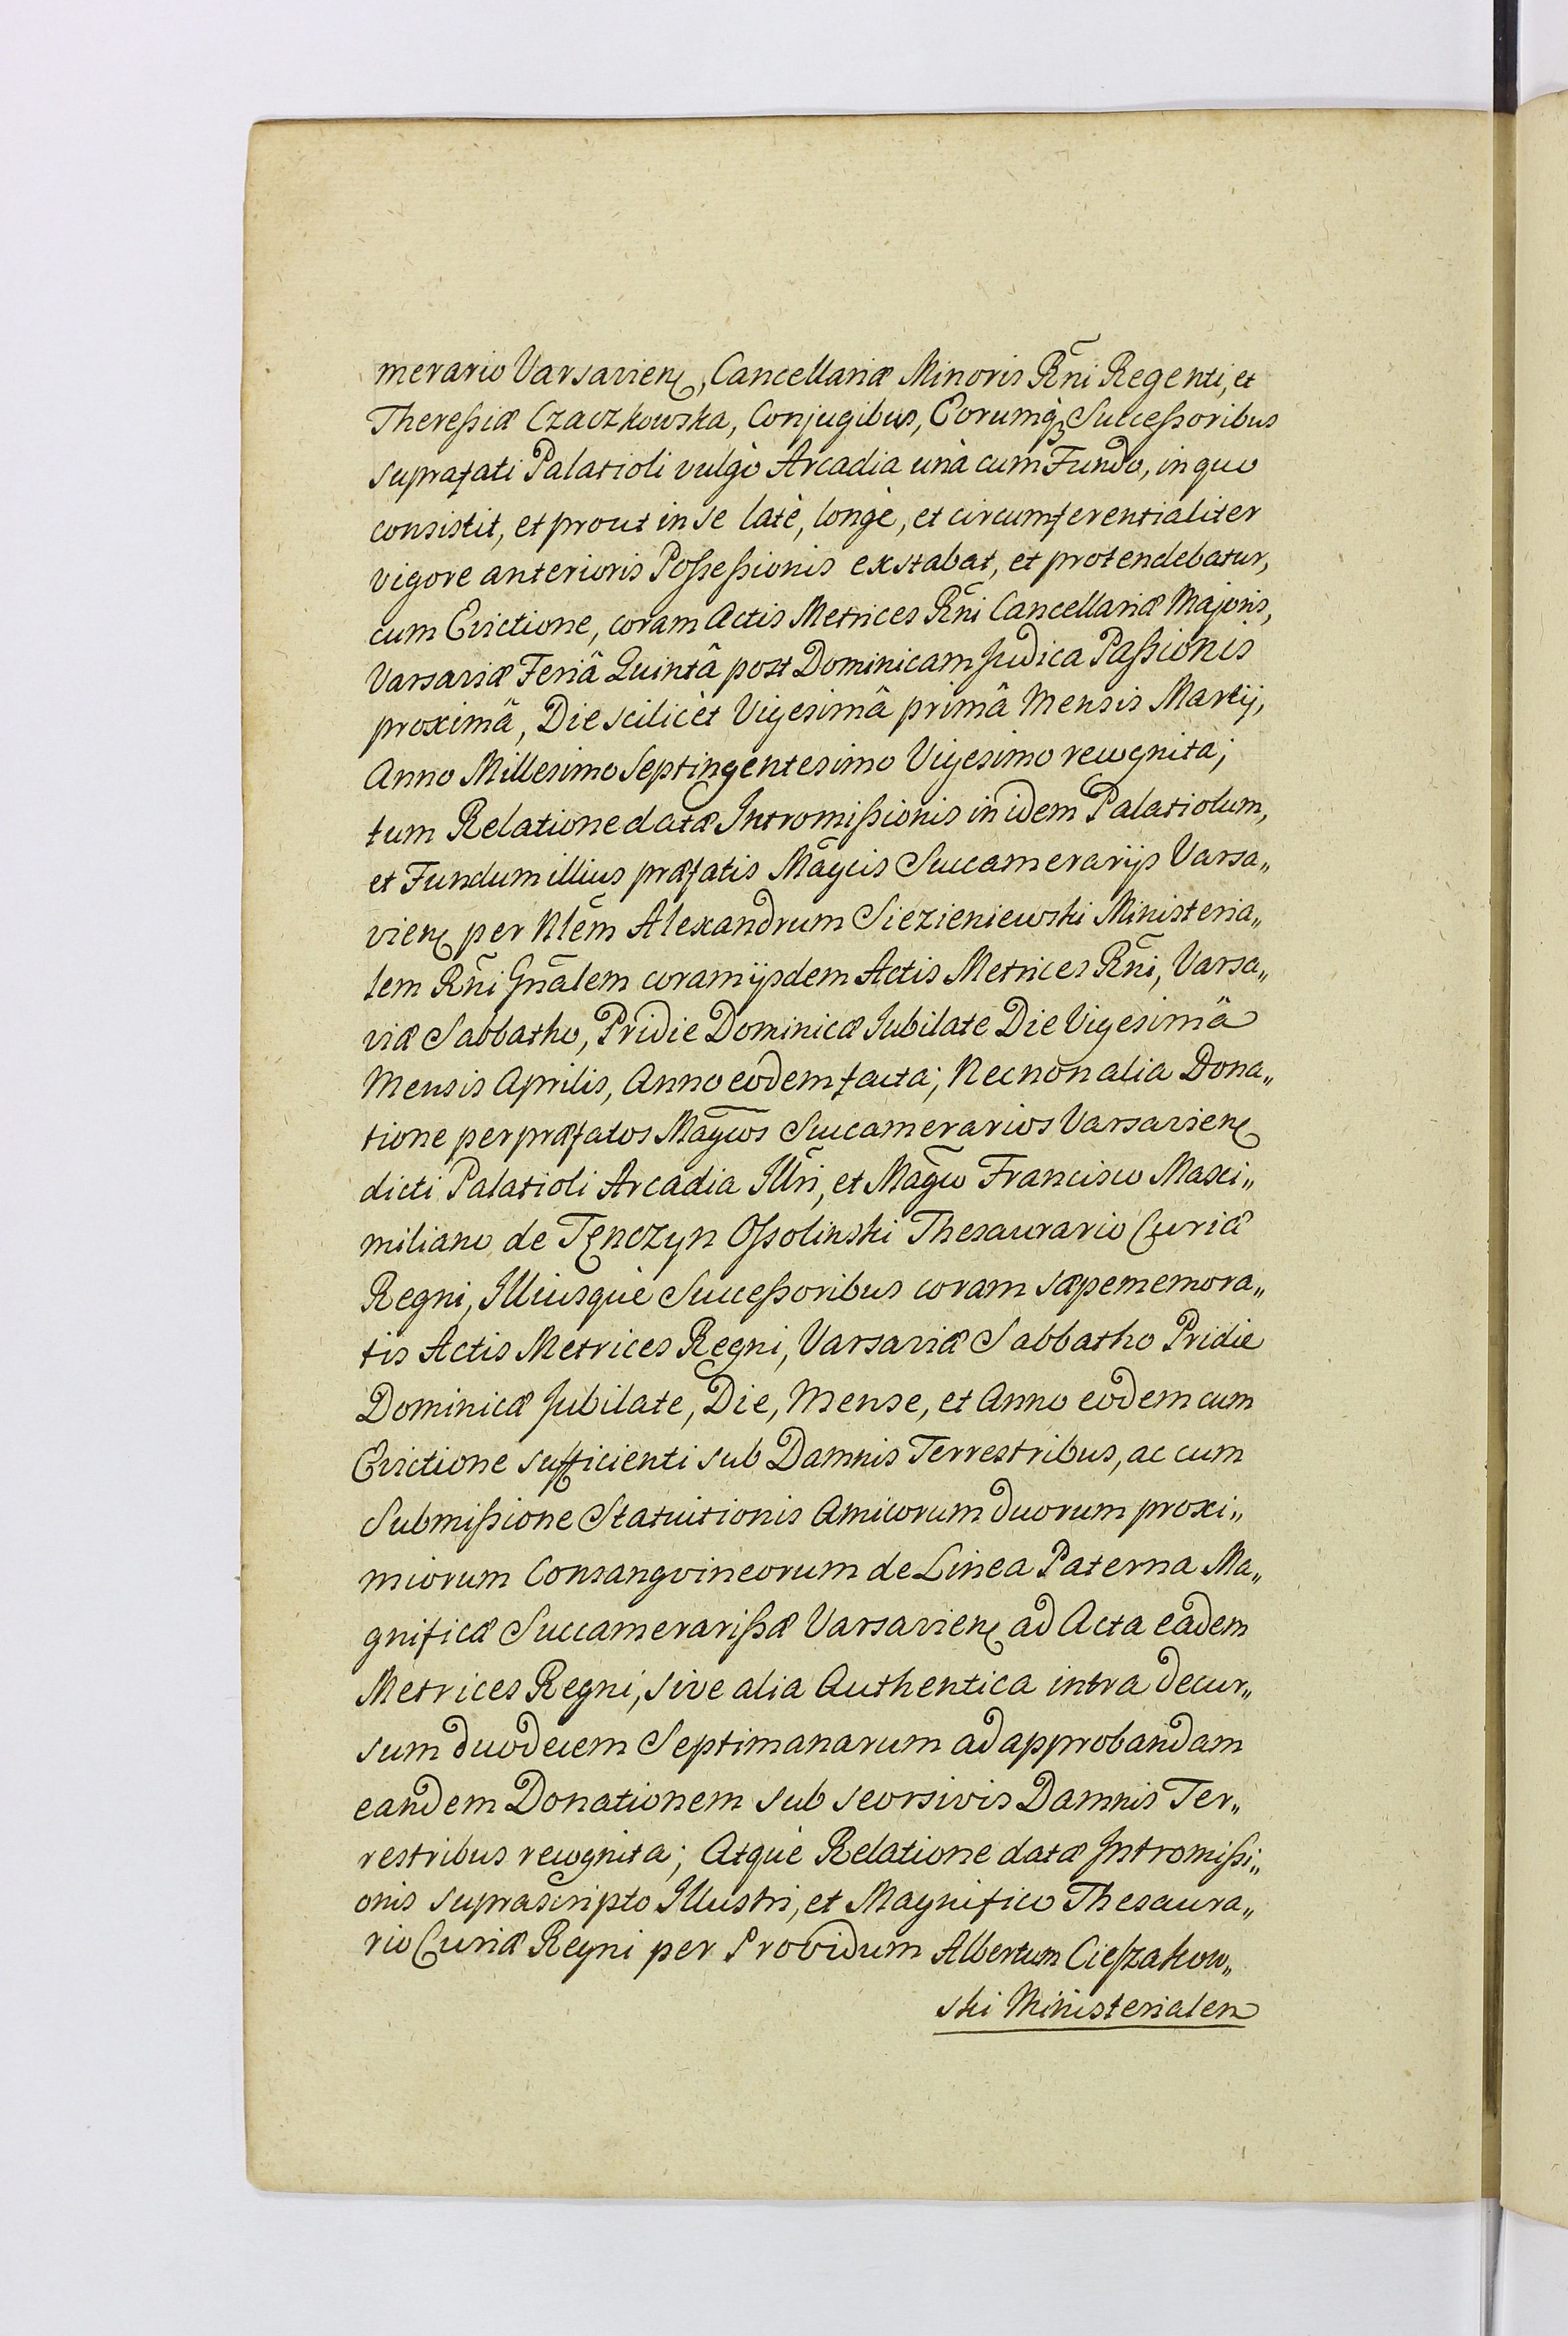 merario Varsavien, Cancellariæ Minoris Rñi Regenti, et
Thereßiæ Czaczkowska, Conjugibus, Eorumq₃ Succeßoribus
suprafati Palatioli vulgò Arcadia unà cum Fundo, in quo
consistit, et prout in se latè, longè, et circumferentialiter
vigore anterioris Poßeßionis exstabat, et protendebatur,
cum Evictione, coram Actis Metrices Rñi Cancellariæ Majoris,
Varsaviæ Feriâ Quintâ post Dominicam Judica Paßionis
proximâ, Die scilicèt Vigesimâ primâ Mensis Martij,
Anno Millesimo Septingentesimo Vigesimo recognita;
tum Relatione datæ Intromißionis in idem Palatiolum,
et Fundum illius præfatis Magcis Succamerarijs Varsa„
vien per Nlem Alexandrum Siezieniewski Ministeria„
lem Rñi Gnãlem coram ijsdem Actis Metrices Rñi, Varsa„
viæ Sabbatho, Pridie Dominicæ Jubilate Die Vigesimâ
Mensis Aprilis, Anno eodem facta; Necnon alia Dona„
tione per præfatos Magcos Succamerarios Varsavien
dicti Palatioli Arcadia Illri, et Magco Francisco Maxi„
miliano de Tęnczyn Oßolinski Thesaurario Curiæ
Regni, Illiusquè Succeßoribus coram sæpememora„
tis Actis Metrices Regni, Varsaviæ Sabbatho Pridie
Dominicæ Jubilate, Die, Mense, et Anno eodem cum
Evictione sufficienti sub Damnis Terrestribus, ac cum
Submißione Statuitionis Amicorum duorum proxi„
miorum Consangvineorum de Linea Paterna Ma„
gnificæ Succamerarißæ Varsavien ad Acta eadem
Metrices Regni, sive alia Authentica intra decur„
sum duodecem Septimanarum ad approbandam
eandem Donationem sub seorsivis Damnis Ter„
restribus recognita; Atquè Relatione datæ Intromißi„
onis suprascripto Illustri, et Magnifico Thesaura„
rio Curiæ Regni per Providum Albertum Cießzakow„
ski Ministerialem